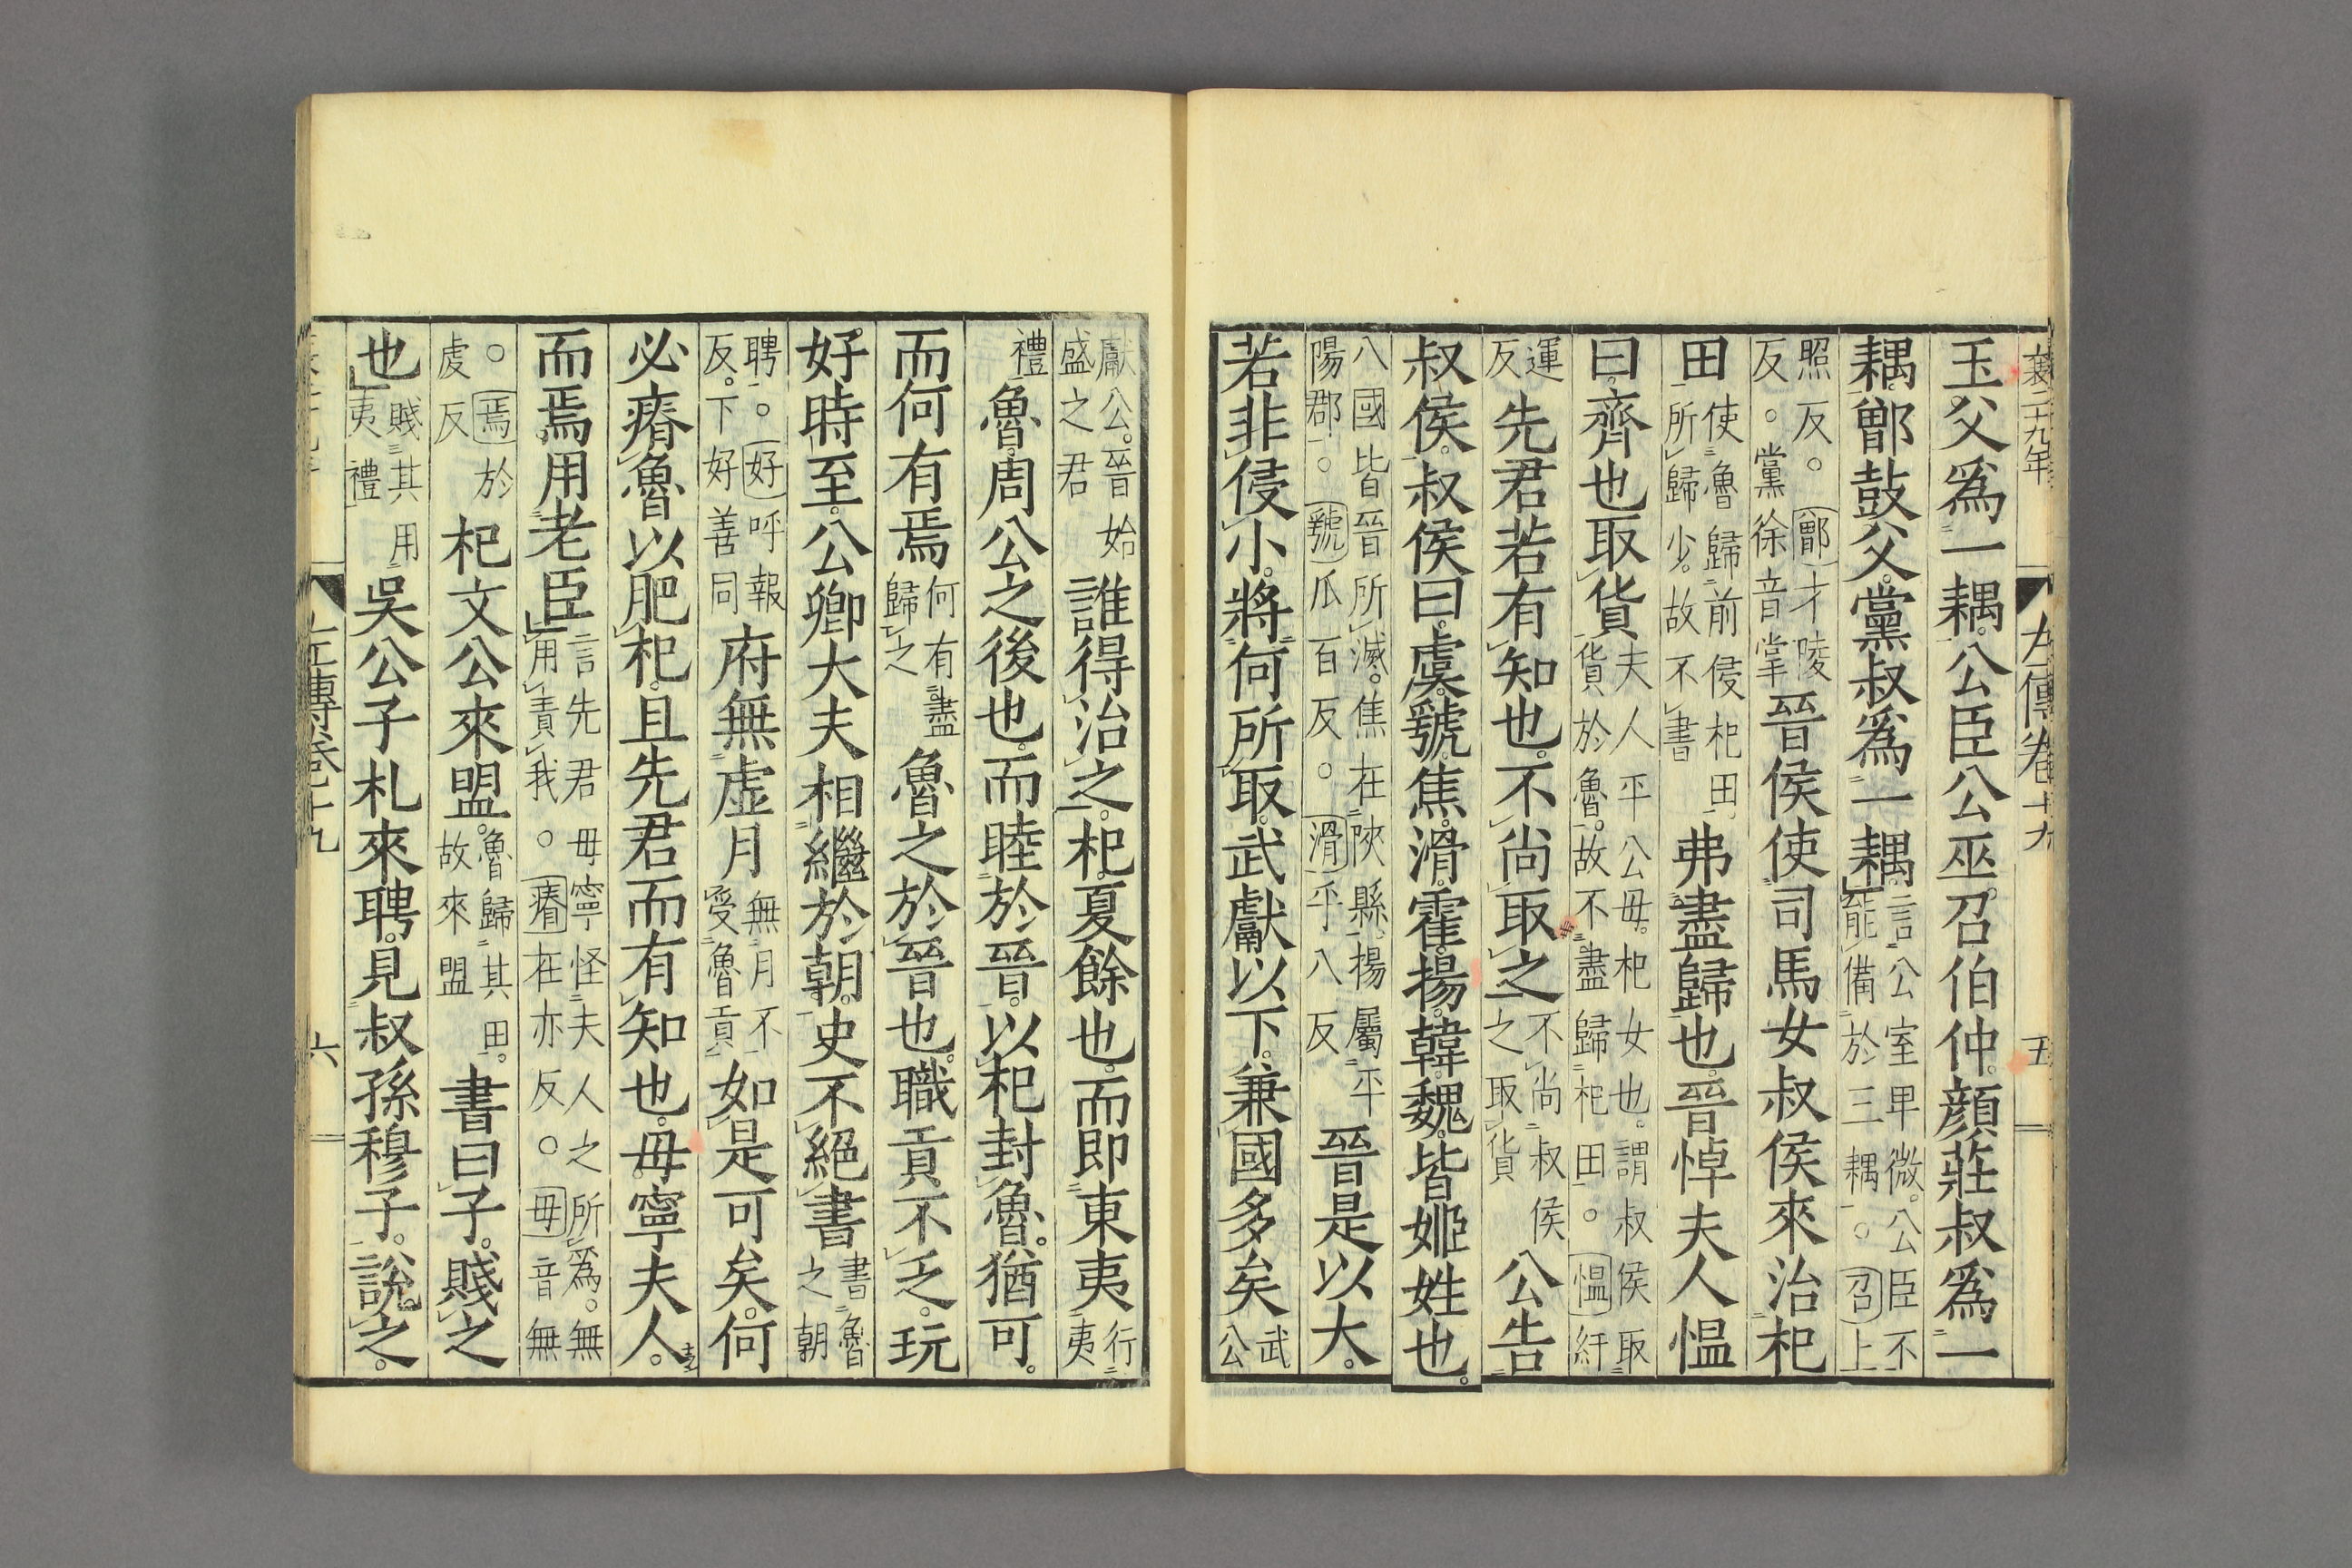 襄二十九年 左傳卷十九 五
玉父爲一耦。公臣公巫。召伯仲。顔莊叔爲一
耦。鄫鼓父。黨叔爲一耦。言公室卑微。公臣不能備於三耦。○召上
照反。鄫才陵反。○黨徐音掌晉侯使司馬女叔侯來治杞
田使魯歸前侵杞田所歸少。故不書弗盡歸也。晉悼夫人愠
曰。齊也取貨夫人平公母。杞女也。謂叔侯取貨於魯。故不盡歸杞田。○愠紆
運反先君若有知也。不尚取之不尚叔侯之取貨公告
叔侯。叔侯曰。虞虢。焦。滑。霍。揚。韓。魏。皆姬姓也。
八國皆晉所滅。焦在陜縣。揚屬平陽郡。○虢瓜百反。○滑乎八反晉是以大。
若非侵小。將何所取。武獻以下。兼國多矣武公
獻公。晉始盛之君誰得治之。杞。夏餘也。而即東夷行夷
禮魯。周公之後也。而睦於晉。以杞封魯。猶可。
而何有焉何有盡歸之魯之於晉也。職貢不乏。玩
好時至。公卿大夫相繼於朝。史不絕書書魯之朝
聘。○好呼報反。下好善同府無虛月無月不受魯貢如是可矣。何
必瘠魯以肥杞。且先君而有知也。毋寧夫人。
而焉用老臣言先君毋寧怪夫人之所爲。無用責我。○瘠在亦反。○毋音無
○焉於虔反杞文公來盟。魯歸其田。故來盟書曰子。賤之
也賤其用夷禮吳公子札來聘。見叔孫穆子。說之。
左傳卷十九 六